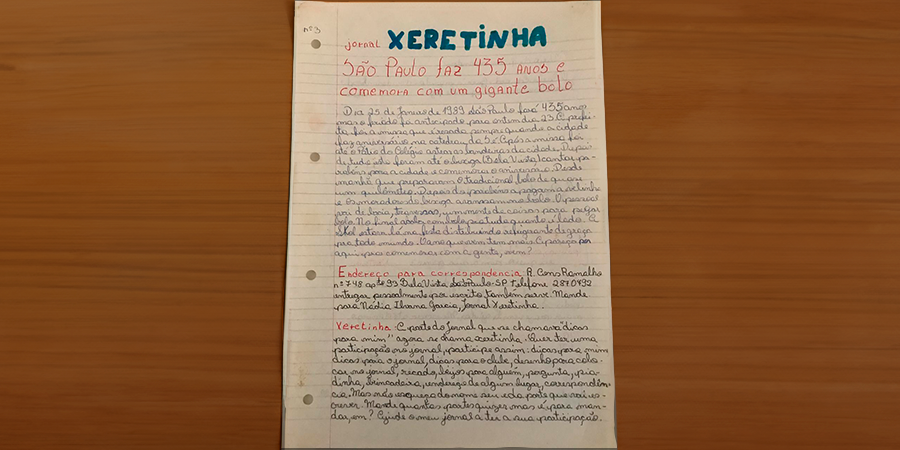 nº 3
jornal XERETINHA
SÃO PAULO FAZ 435 ANOS E
COMEMORA COM UM gigANTE bOLO
Dia 25 de Janeiro de 1989 São Paulo fará 435 anos
mas o feriado foi antecipado para ontem dia 23. O prefei-
to foi a missa que é rezada sempre quando a cidade
faz aniversário na catedral da Sé. Após a missa foi
até o Pátio do Colégio as bandeiras da cidade. Depois
de tudo isto foram até o bexiga (Bela Vista) cantar pa-
rabéns para a cidade e comemorar o aniversário. Desde
manhã que prepararam o tradicional bolo de quase
um quilômetro. Depois do parabéns
e os moradores do bexiga avançaram no bolo. O pessoal
vai de bacia, travessas, de caixas para pegar
bolo. No final bolo pra tudo quanto é lado. A
Skol estava lá na festa distribuindo refrigerante de graça
pra todo mundo. O ano que vem tem mais. Apareça por
aqui pra comemorar com a gente, vem?
Endereço para correspondencia R. Cons Ramalho
nº 748 apto 93 Bela Vista São Paulo-SP Telefone 287.0492
entregar pessoalmente por escrito também serve. Mande
para Nádia Ilvana Garcia, Jornal Xeretinha.
Xeretinha - A parte do Jornal que se chamava "dicas
para mim" agora se chama xeretinha. Quer ter uma
participação no jornal, participe assim: dicas para mim
dicas para o jornal, dicas para o clube, desenho para colo-
car no jornal, recado, beijos para alguém, pergunta, pia-
dinha, brincadeira, endereço de algum lugar, correspondên-
cia. Mas não esqueça do nome seu e da parte que vai es-
crever. Mande quantas partes quizer mas é para man-
dar, em? Ajude o meu jornal a ter a sua participação.